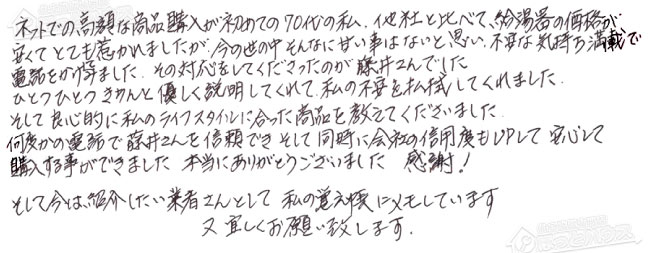 ネットでの高額な商品購入が初めての70代の私、他社と比べて、給湯器の価格が
安くてとても惹かれましたが、今の世の中そんなに甘い事はないと思い、不安な気持ち満載で
電話をかけました。その対応をしてくださったのが藤井さんでした
ひとつひとつきちんと優しく説明してくれて、私の不安を払拭してくれました。
そして良心的に私のライフスタイルに合った商品を教えてくださいました。
何度かの電話で藤井さんを信頼でき そして同時に会社の信用度もUPして 安心して
購入する事ができました 本当にありがとうございました 感謝!
そして今は、紹介したい業者さんとして 私の覚え帳にメモしています
又宜しくお願い致します.